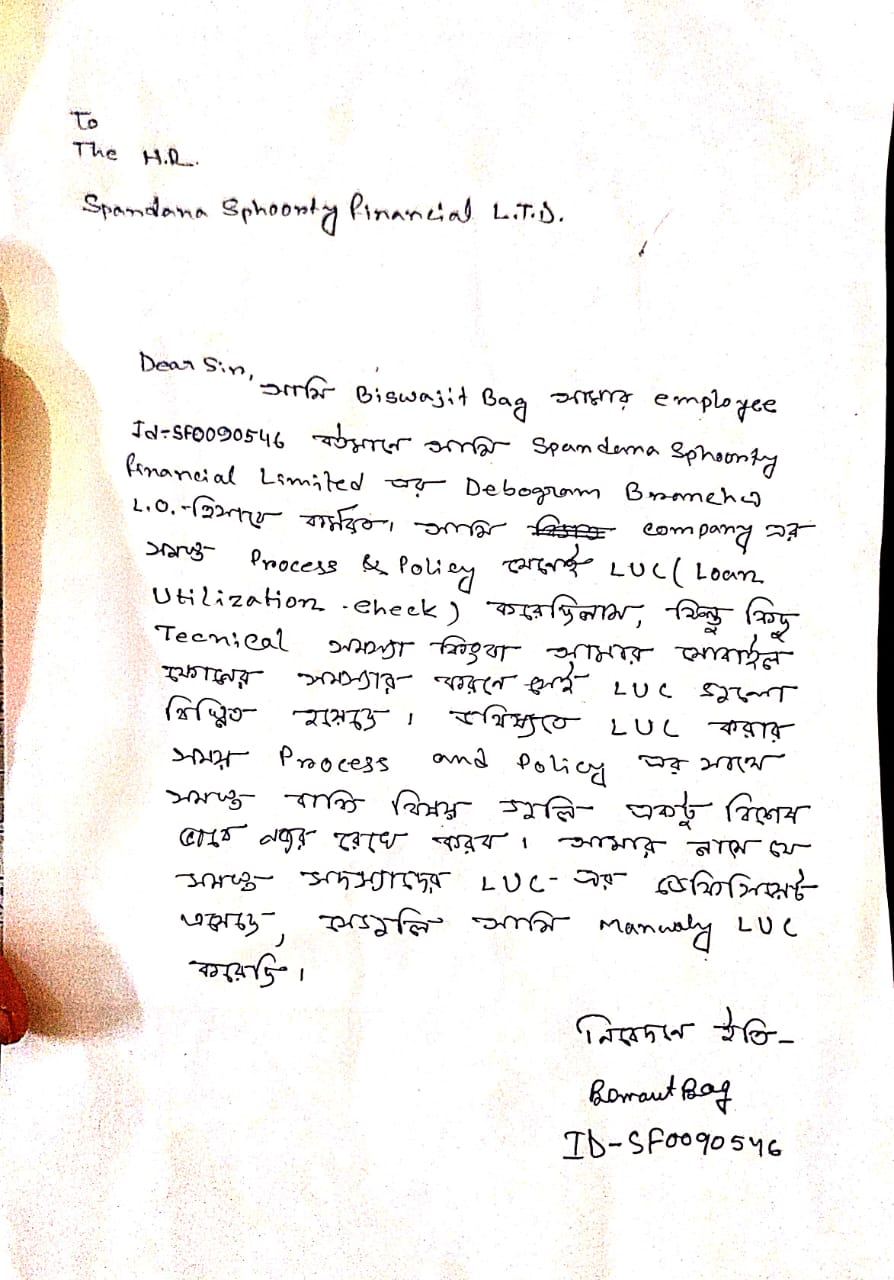 To
The H.R.
Spandana Sphoorty Financial L.T.D.
Dear Sir,
আমি Biswajit Bag আমার employee
Id-SF0090546 বর্তমানে আমি Spandana Sphoorty
Financial Limited এর Debogram Branch এ
L.O.-হিসাবে কার্মরত। আমি company এর
সমস্ত Process & Policy মেনেই LUC (Loan
Utilization check) করেছিলাম, কিন্তু কিছু
Tecnical সমস্যা কিংবা আমার মোবাইল
ফোনের সমস্যার কারণে সেই LUC গুলো
বিঘ্নিত হয়েছে। ভবিষ্যতে LUC করার
সময় Process and Policy এর সাথে
সমস্ত বাকি বিষয় গুলি একটু বিশেষ
ভাবে নজর রেখে করব। আমার নামে যে
সমস্ত সদস্যাদের LUC-এর ডেফিসিয়েন্ট
এসেছে, সেগুলি আমি Manualy LUC
করেছি।
নিবেদনে ইতি-
Bag
ID-SF0090546